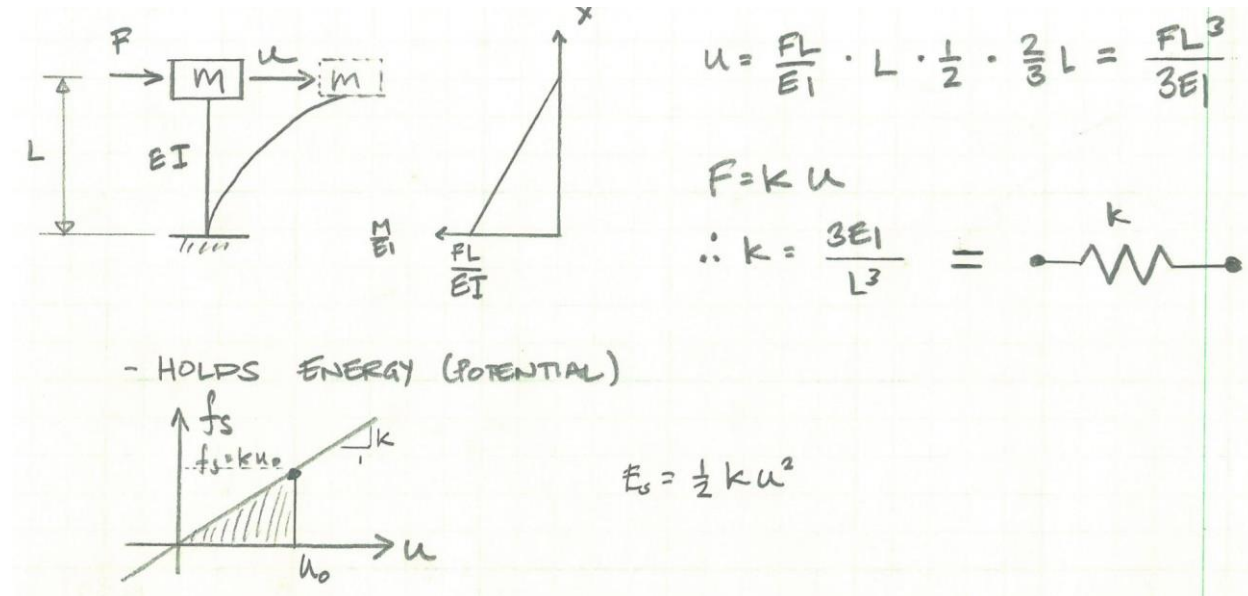 x
F
m
u
m
L
EI
M/EI
FL/EI
u = FL/EI · L · 1/2 · 2/3 L = FL³/3EI
F = k u
∴ k = 3EI/L³ =
k
- HOLDS ENERGY (POTENTIAL)
fs
fs = ku₀
k
1
u
u₀
Es = 1/2 k u²